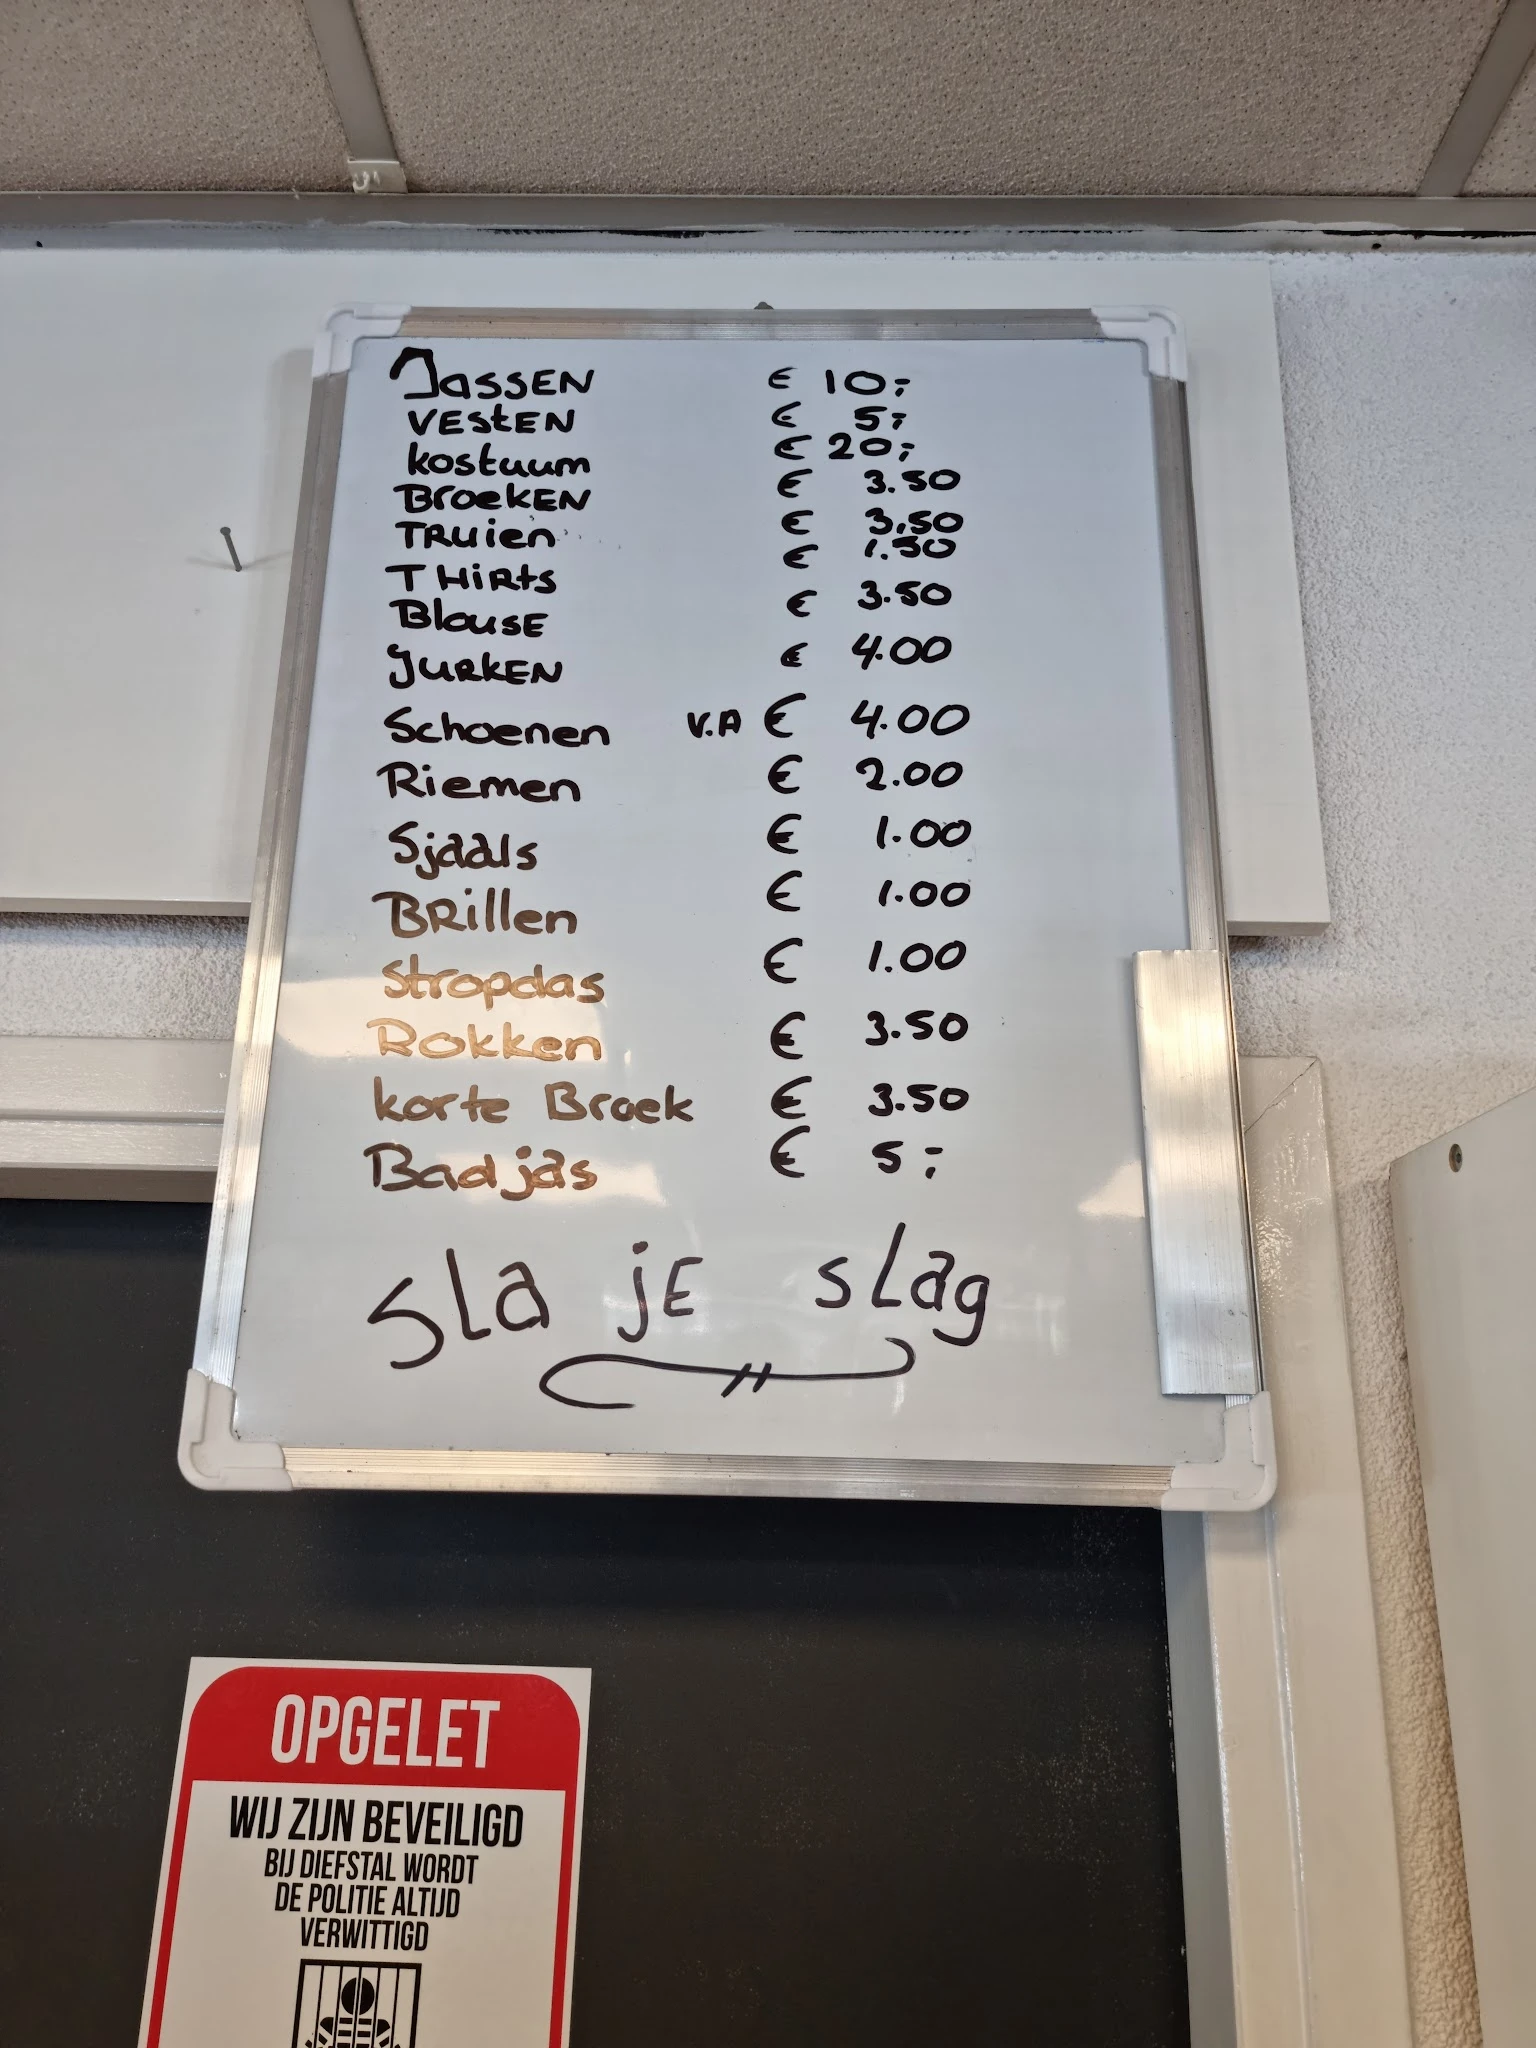 JASSEN € 10,-
VESTEN € 5,-
kostuum € 20,-
BROEKEN € 3.50
TRUIEN € 3.50
T HIRTS € 1.50
BLOUSE € 3.50
JURKEN € 4.00
Schoenen V.A € 4.00
Riemen € 2.00
Sjaals € 1.00
BRillen € 1.00
Stropdas € 1.00
Rokken € 3.50
korte Broek € 3.50
Badjas € 5,-
SLA jE SLag
OPGELET
WIJ ZIJN BEVEILIGD
BIJ DIEFSTAL WORDT
DE POLITIE ALTIJD
VERWITTIGD